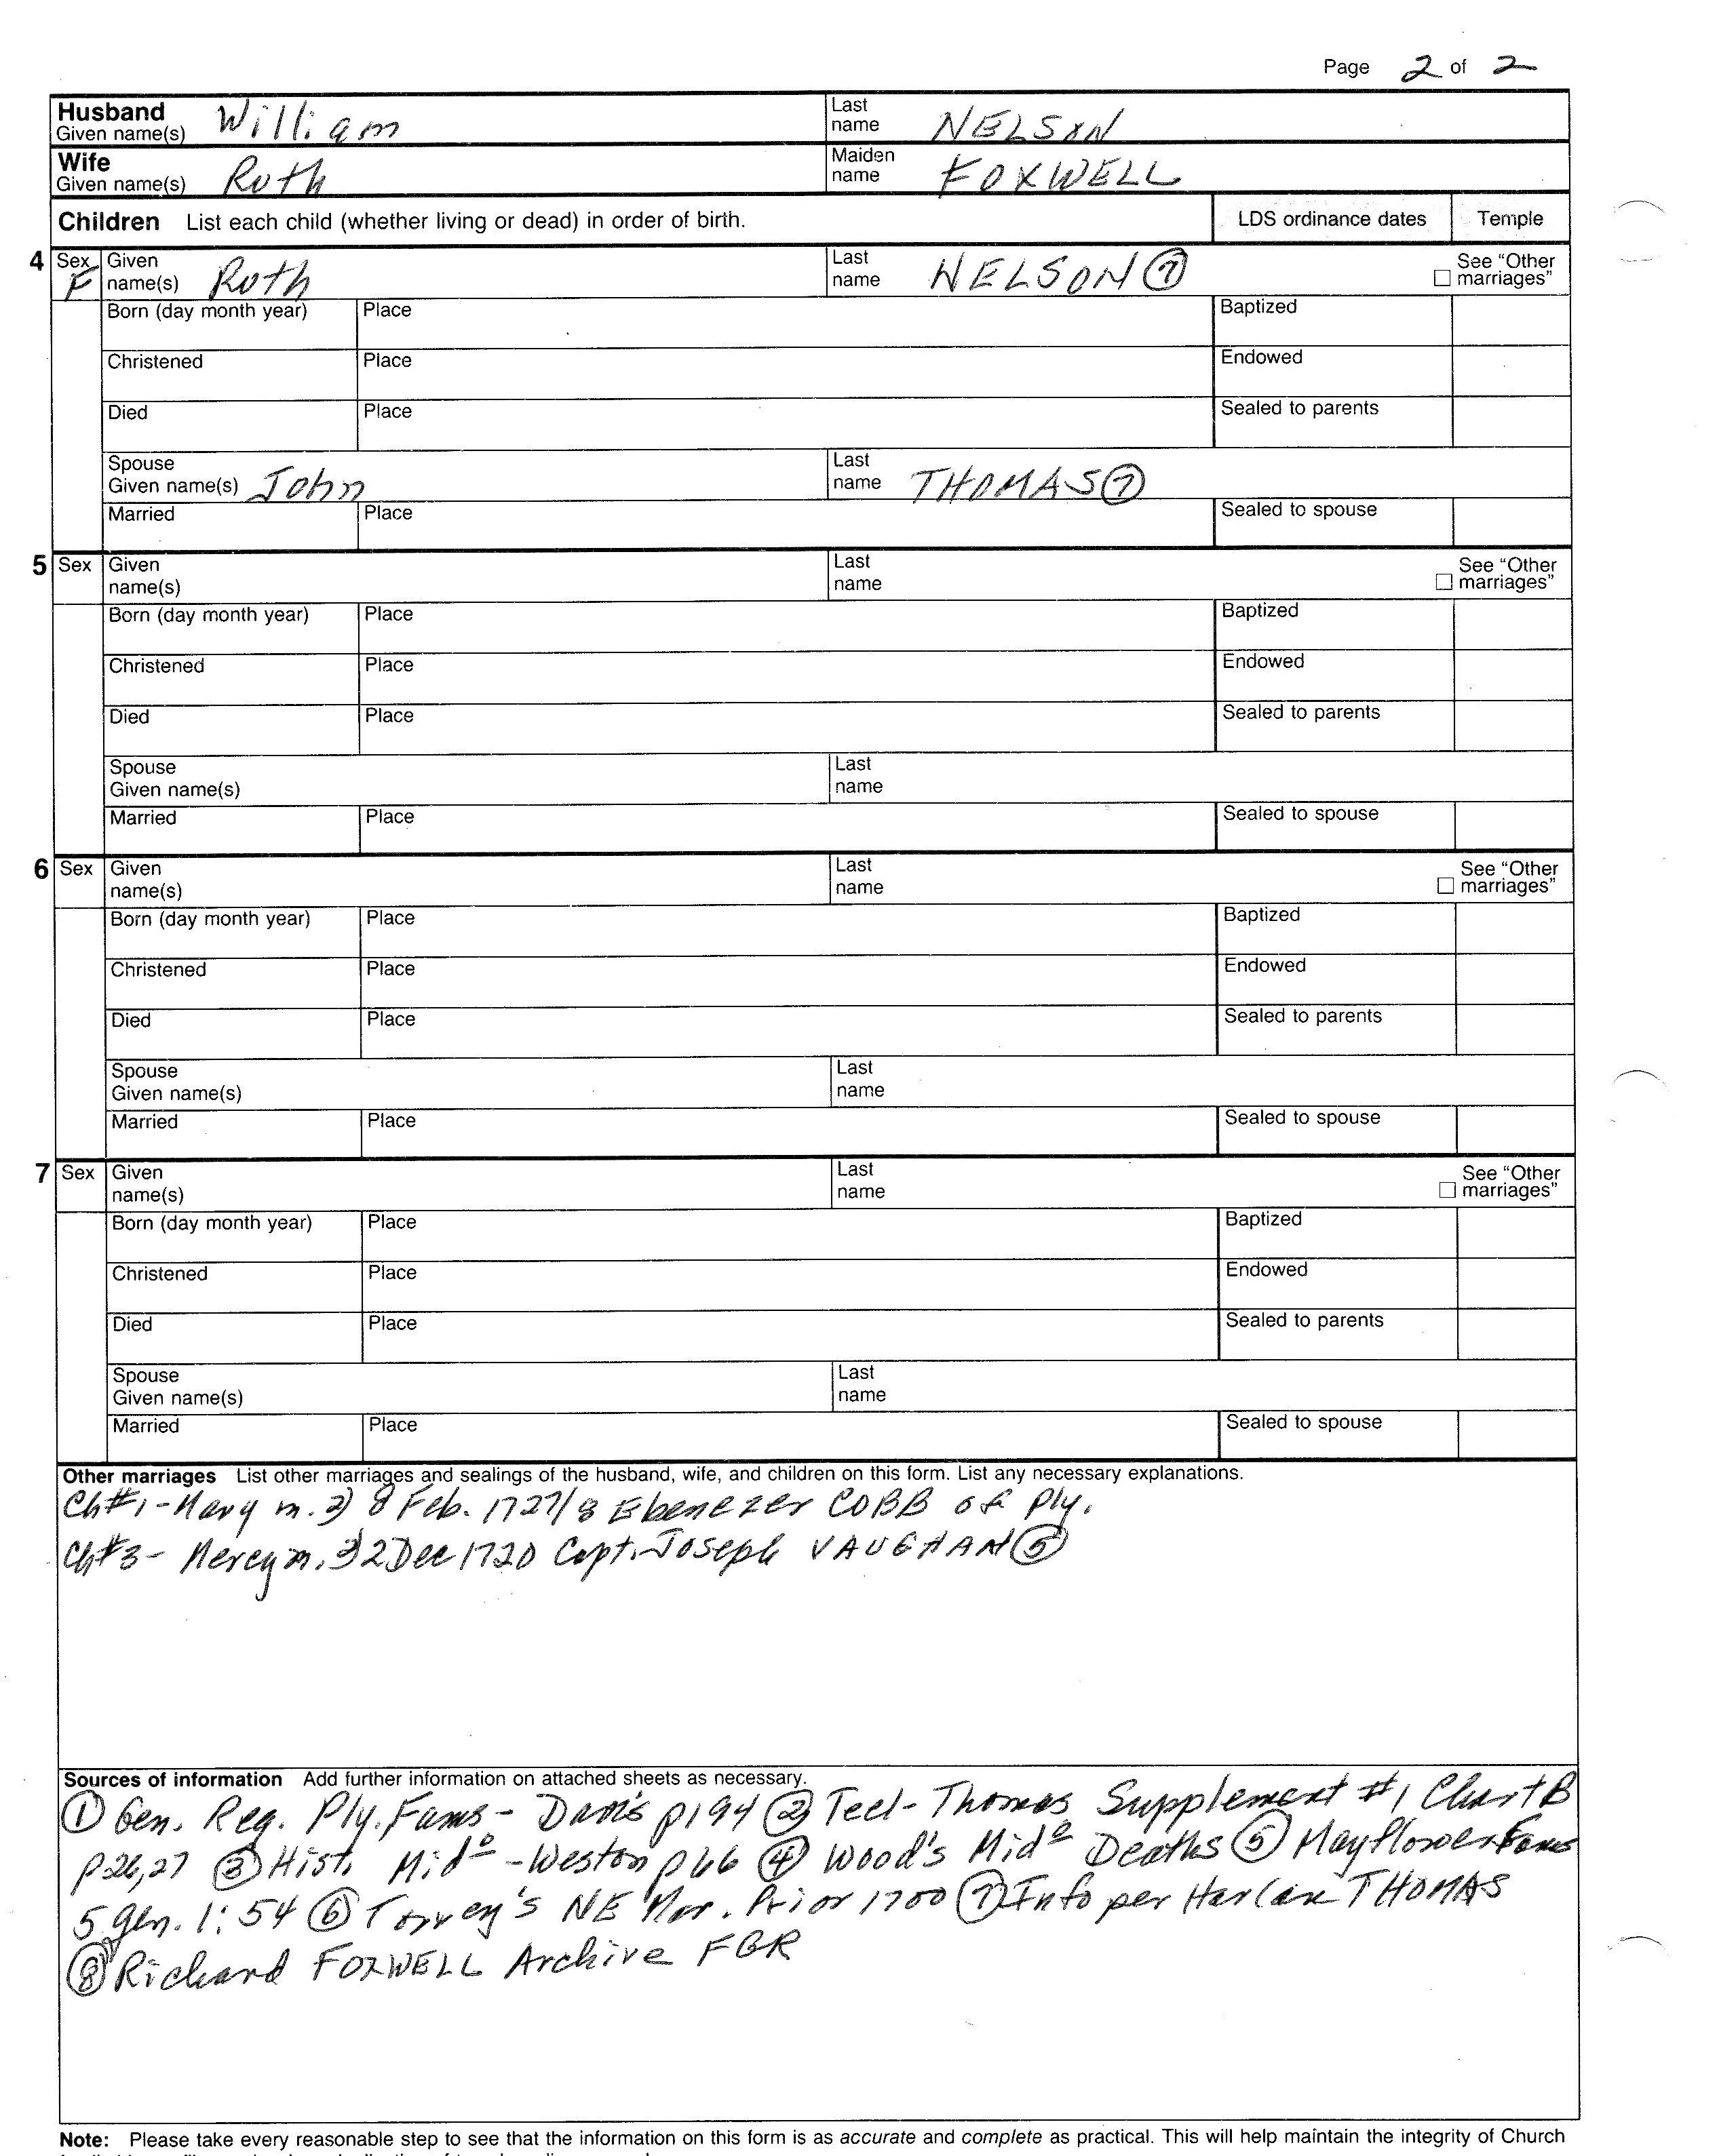 Page 2 of 2
Husband Given name(s) William Last name NELSON
Wife Given name(s) Ruth Maiden name FOXWELL
Children List each child (whether living or dead) in order of birth. LDS ordinance dates Temple
4 Sex F Given name(s) Ruth Last name NELSON ⑦ See "Other marriages"
Born (day month year) Place Baptized
Christened Place Endowed
Died Place Sealed to parents
Spouse Given name(s) John Last name THOMAS ⑦
Married Place Sealed to spouse
5 Sex Given name(s) Last name See "Other marriages"
Born (day month year) Place Baptized
Christened Place Endowed
Died Place Sealed to parents
Spouse Given name(s) Last name
Married Place Sealed to spouse
6 Sex Given name(s) Last name See "Other marriages"
Born (day month year) Place Baptized
Christened Place Endowed
Died Place Sealed to parents
Spouse Given name(s) Last name
Married Place Sealed to spouse
7 Sex Given name(s) Last name See "Other marriages"
Born (day month year) Place Baptized
Christened Place Endowed
Died Place Sealed to parents
Spouse Given name(s) Last name
Married Place Sealed to spouse
Other marriages List other marriages and sealings of the husband, wife, and children on this form. List any necessary explanations.
Ch#1 - Mary m. 2) 8 Feb. 1727/8 Ebenezer COBB of Ply.
Ch#3 - Mercy m. 2 Dec 1720 Capt. Joseph VAUGHAN ⑤
Sources of information Add further information on attached sheets as necessary.
① Gen. Reg. Ply. Fams - Davis p194 ② Teel-Thomas Supplement #1 Chart B
p26,27 ③ Hist. Midº - Weston p66 ④ Wood's Midº Deaths ⑤ Mayflower Fams
5 gen. 1:54 ⑥ Torrey's NE Mar. Prior 1700 ⑦ Info per Harlan THOMAS
⑧ Richard FOXWELL Archive FGR
Note: Please take every reasonable step to see that the information on this form is as accurate and complete as practical. This will help maintain the integrity of Church